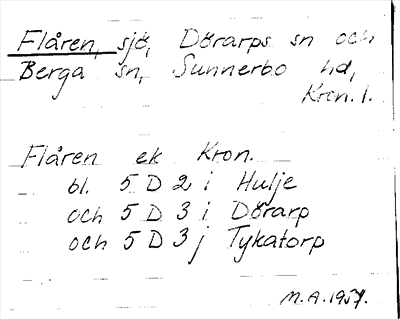 Flåren, sjö, Dörarps sn och
Berga sn, Sunnerbo hd,
Kron. l.
Flåren ek Kron.
bl. 5 D 2 i Hulje
och 5 D 3 i Dörarp
och 5 D 3 j Tykatorp
M.A. 1957.